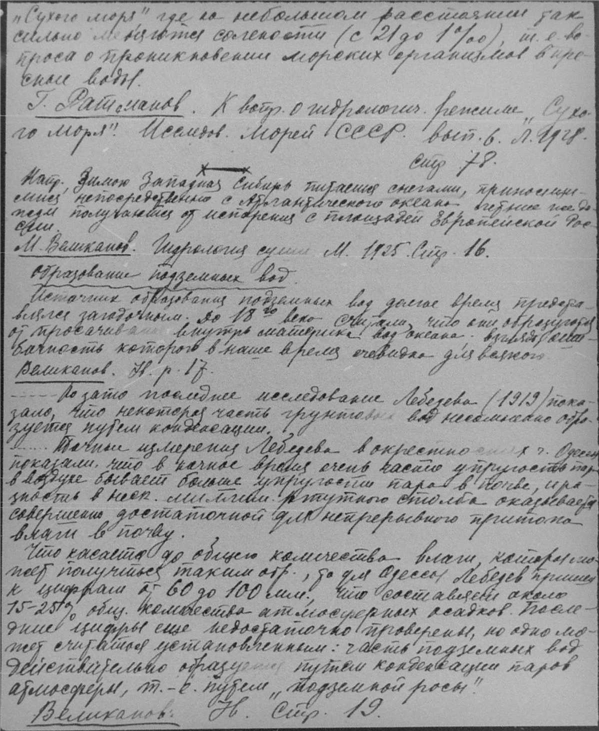 „Сухого моря" где на небольшом расстоянии так
сильно меняются солености (с 21 до 1 ‰), т.е. во-
проса о проникновении морских организмов в пре-
сные воды.
Г. Ратманов. К вопр. о гидрологич. режиме „Сухо-
го моря". Исслед. морей СССР. вып. 6. Л. 1928.
стр 78.
Напр. Зимою Западная Сибирь питается снегами, приносящи-
мися непосредственно с Атлантического океана летние же до-
жди получаются от испарения с площадей Европейской Рос-
сии.
М. Великанов. Гидрология суши М. 1925. Стр. 16.
Образование подземных вод.
Источник образования подземных вод долгое время предста-
влялся загадочным. До 18го века считали, что они образуются
от просачивания внутрь материка вод океана. взгляд
бачность которого в наше время очевидна для всякого
Великанов. Н. р. 17.
Но зато последние исследование Лебедева (1919) пока-
зало, что некоторая часть грунтовых вод несомненно обра-
зуется путем конденсации.
Точные измерения Лебедева в окрестностях г. Одессы
показали что в ночное время очень часто упругость пара
в воздухе бывает больше упругости пара в почве, и ра-
зность в неск. миллим. ртутного столба оказывается
совершенно достаточной для непрерывного притока
влаги в почву.
Что касается до общего количества влаги, которая мо-
жет получиться таким обр., то для Одессы Лебедев пришел
к цифрам от 60 до 100 мм. что составляет около
15-25% общ. количества атмосферных осадков. После-
дние цифры еще недостаточно проверены, но одно мо-
жет считаться установленным: часть подземных вод
действительно образуется путем конденсации паров
атмосферы, т.-е. путем „подземной росы".
Великанов. Н. Стр. 19.